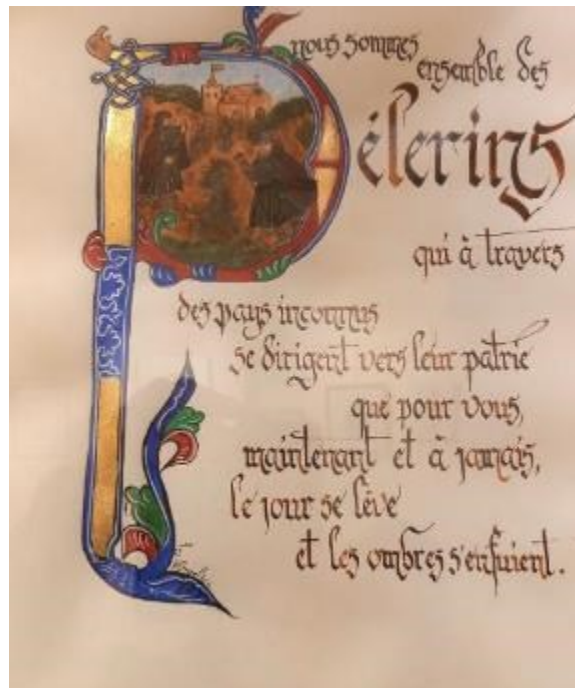 nous sommes
ensemble des
Pélerins
qui à travers
des pays inconnus
se dirigent vers leur patrie
que pour vous,
maintenant et à jamais,
le jour se lève
et les ombres s'enfuient.